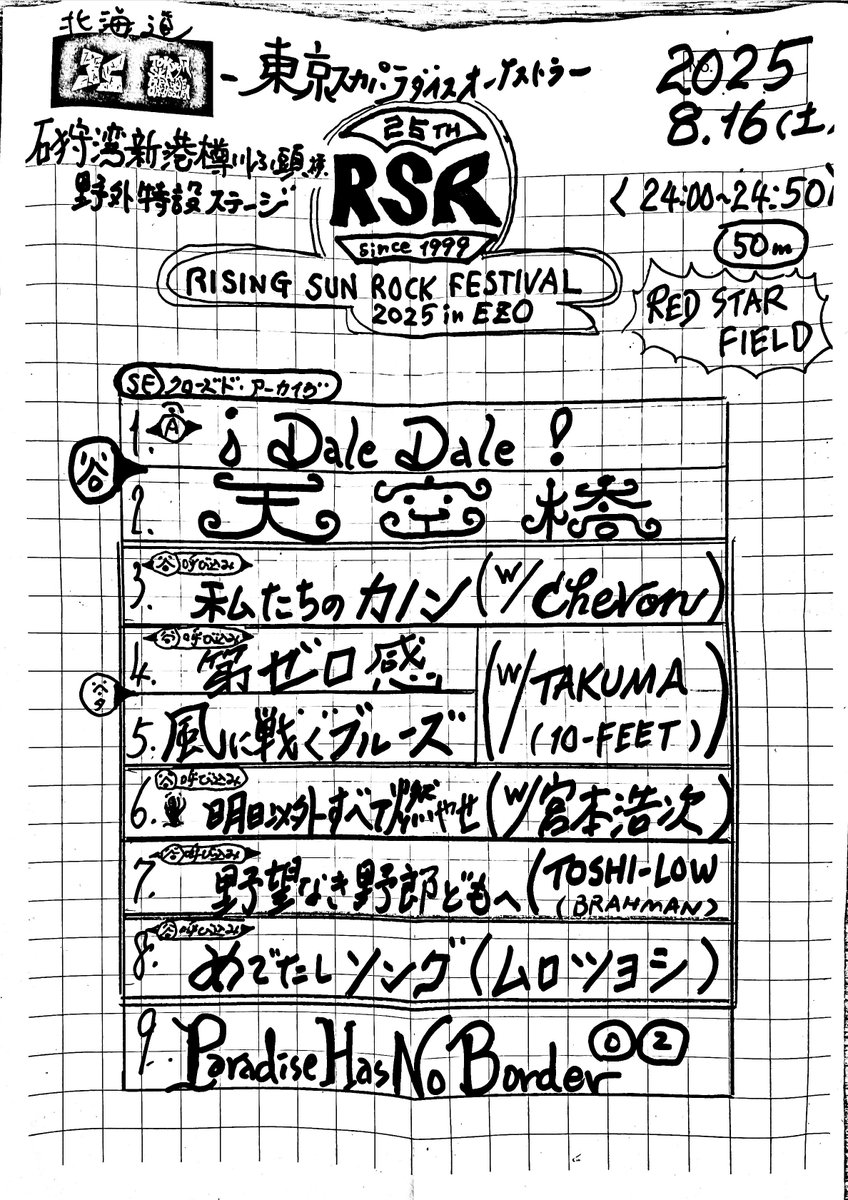 北海道
東京スカパラダイスオーケストラー
2025
8.16(土
25TH
RSR
since 1999
石狩湾新港樽川ふ頭横
野外特設ステージ
〈24:00~24:50〉
50m
RISING SUN ROCK FESTIVAL
2025 in EZO
RED STAR
FIELD
SE クローズド・アーカイヴ
1. A ¡Dale Dale!
谷
2. 天空橋
谷 呼び込み
3. 私たちのカノン(w/Chevon)
谷 呼び込み
4. 第ゼロ感
5. 風に戦ぐブルーズ
(w/TAKUMA
(10-FEET))
谷 呼び込み
6. 明日以外すべて燃やせ(w/宮本浩次)
谷 呼び込み
7. 野望なき野郎どもへ(TOSHI-LOW
(BRAHMAN)
谷 呼び込み
8. めでたしソング(ムロツヨシ)
9. Paradise Has No Border 0 2